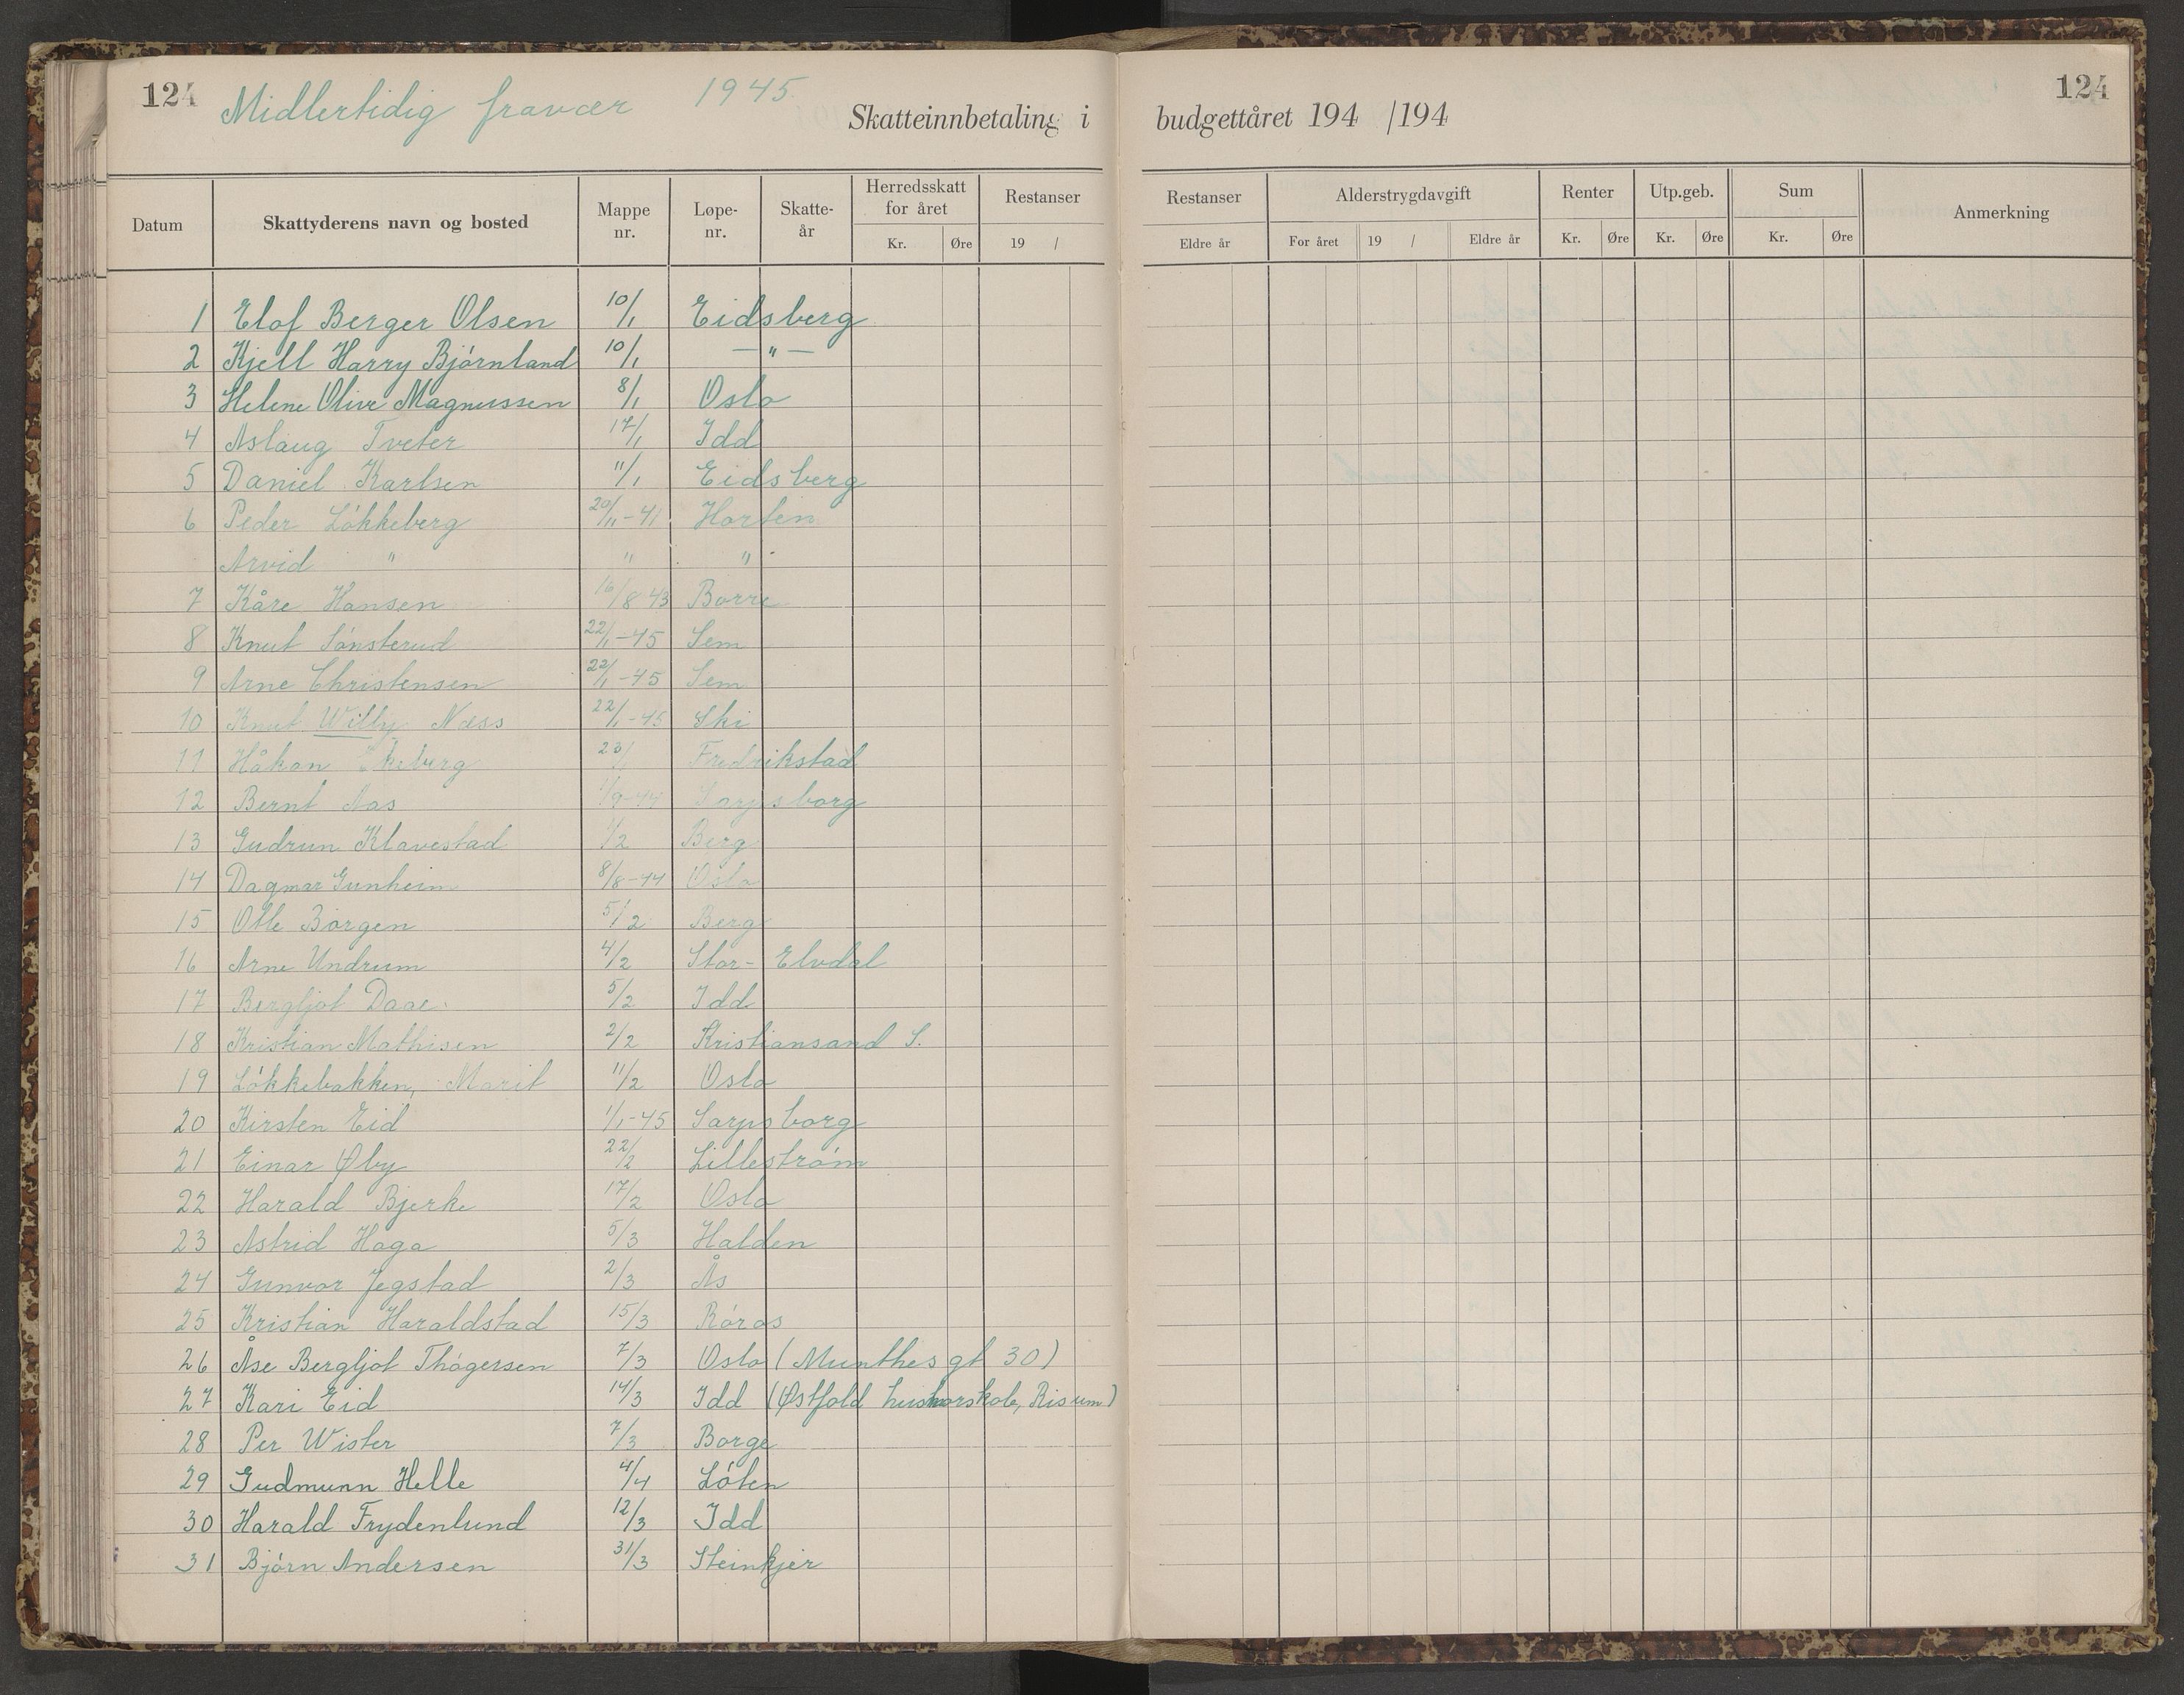 124 Midlertidig fravær 1945 Skatteinnbetaling i budgettåret 194 /194 124
Datum Skattyderens navn og bosted Mappe nr. Løpe-nr. Skatte-år Herredsskatt for året Kr. Øre Restanser 19 / Restanser Eldre år Alderstrygdavgift For året 19 / Eldre år Renter Kr. Øre Utp.geb. Kr. Øre Sum Kr. Øre Anmerkning
1 Elof Berger Olsen 10/1 Eidsberg
2 Kjell Harry Bjørnland 10/1 — " —
3 Helene Olive Magnussen 8/1 Oslo
4 Aslaug Tveter 17/1 Idd
5 Daniel Karlsen 11/1 Eidsberg
6 Peder Løkkeberg 20/11-41 Horten
Arvid " " "
7 Kåre Hansen 16/8 43 Borre
8 Knut Sønsterud 22/1-45 Sem
9 Arne Christensen 22/1-45 Sem
10 Knut Willy Næss 22/1-45 Ski
11 Håkan 23/1 Fredrikstad
12 Bernt Aas /9-44 Sarpsborg
13 Gudrun Klavestad /2 Berg
14 Dagmar Gunheim 8/8-44 Oslo
15 Olle Borgen 5/2 Berg
16 Arne Undrum 4/2 Stor-Elvdal
17 Bergljot Daae 5/2 Idd
18 Kristian Mathisen 2/2 Kristiansand S.
19 Løkkebakken, Marit 11/2 Oslo
20 Kirsten Eid 1/1-45 Sarpsborg
21 Einar Øby 22/2 Lillestrøm
22 Harald Bjerke 17/2 Oslo
23 Astrid Haga 5/3 Halden
24 Gunvor Jegstad 2/3 Ås
25 Kristian Haraldstad 15/3 Røros
26 Åse Bergljot Thøgersen 7/3 Oslo (Munthes gt 30)
27 Kari Eid 14/3 Idd (Østfold husmorskole, Risum)
28 Per Wister 7/3 Borge
29 Gudmunn Helle 4/4 Løten
30 Harald Frydenlund 12/3 Idd
31 Bjørn Andersen 31/3 Steinkjer